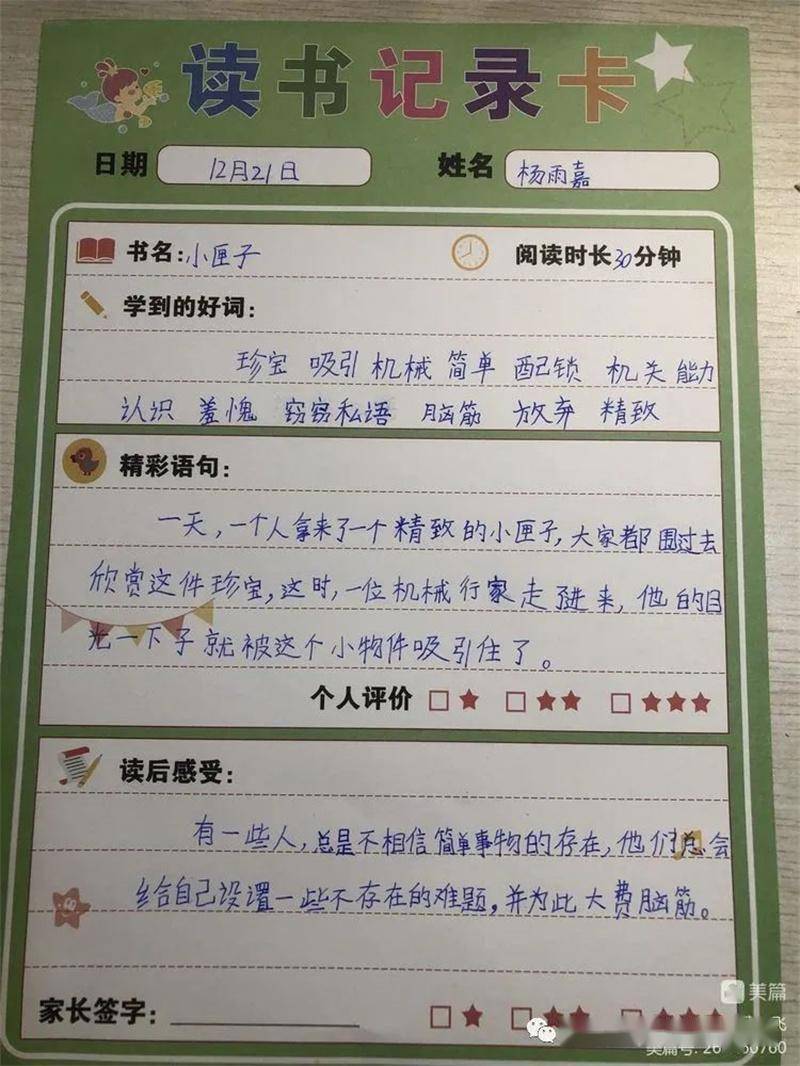 读书记录卡
日期 12月21日 姓名 杨雨嘉
书名:小匣子 阅读时长30分钟
学到的好词:
珍宝 吸引 机械 简单 配锁 机关 能力
认识 羞愧 窃窃私语 脑筋 放弃 精致
精彩语句:
一天,一个人拿来了一个精致的小匣子,大家都围过去
欣赏这件珍宝,这时,一位机械行家走进来,他的目
光一下子就被这个小物件吸引住了。
个人评价
读后感受:
有一些人,总是不相信简单事物的存在,他们总会
给自己设置一些不存在的难题,并为此大费脑筋。
家长签字:
美篇
飞
美篇号: 26